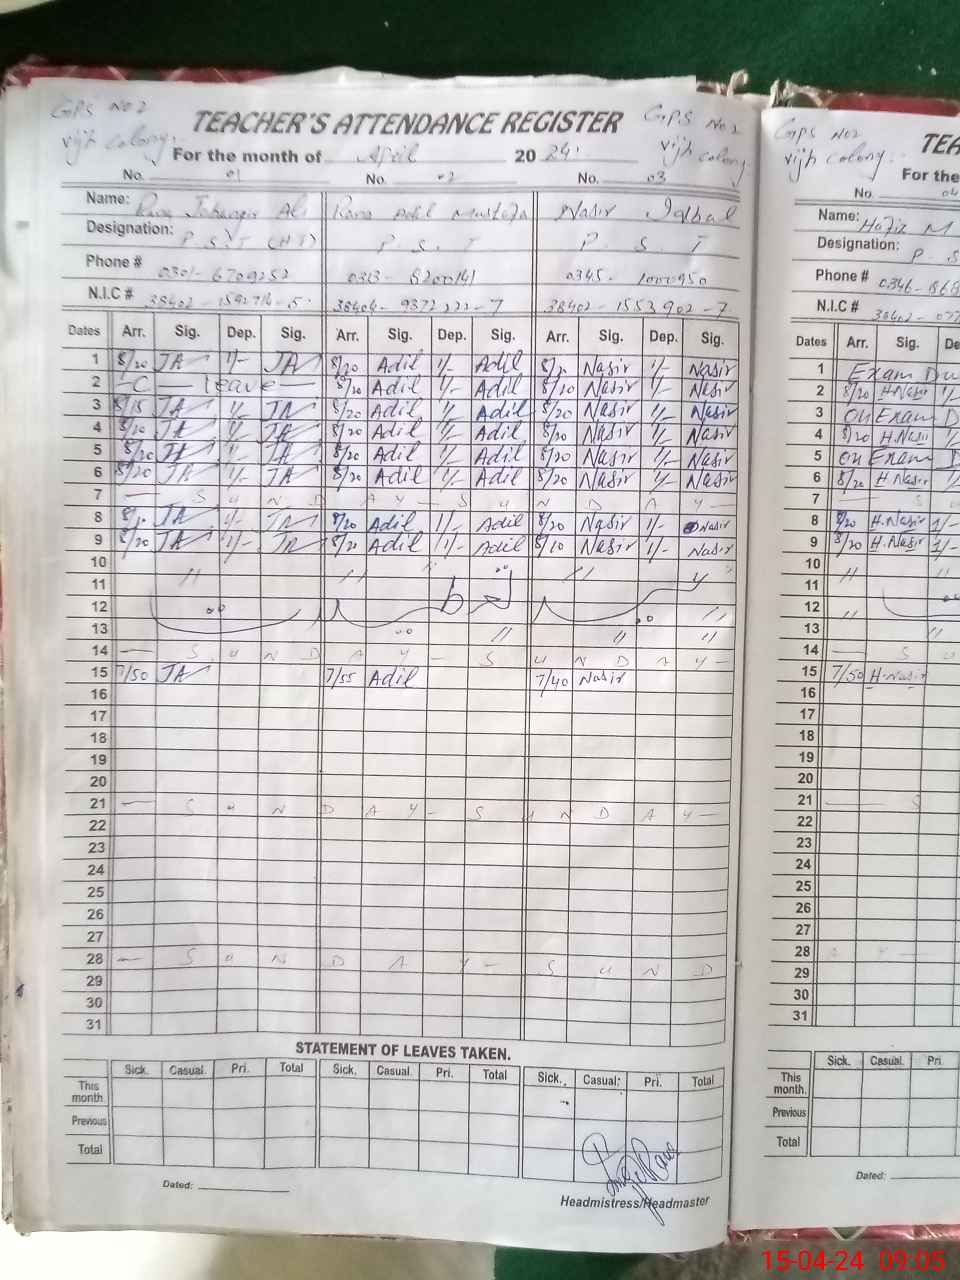 GPS No 2
vijh colony.
TEACHER'S ATTENDANCE REGISTER
GPS No 2
vijh colony
For the month of April 2024
No. 01 No. 02 No. 03
Name: Rana Jahangir Ali Rana Adil Mustafa Nasir Iqbal
Designation: P.S.T (HT) P. S. T P. S. T
Phone # 0301-6709252 0313-6200141 0345. 1000950
N.I.C # 38404-9372222-7 38402-1553902-7
Dates Arr. Sig. Dep. Sig. Arr. Sig. Dep. Sig. Arr. Sig. Dep. Sig.
1 8/20 JA 1/- JA 8/20 Adil 1/- Adil Nasir 1/- Nasir
2 C — leave — 8/20 Adil 1/- Adil 8/10 Nasir 1/- Nasir
3 8/15 JA 1/- JA 8/20 Adil 1/- Adil 8/20 Nasir 1/- Nasir
4 8/20 JA 1/- JA 8/20 Adil 1/- Adil 8/20 Nasir 1/- Nasir
5 8/20 JA 1/- JA 8/20 Adil 1/- Adil 8/20 Nasir 1/- Nasir
6 8/20 JA 1/- JA 8/20 Adil 1/- Adil 8/20 Nasir 1/- Nasir
7 — S U N D A Y — S U N D A Y —
8 JA 1/- JA 8/20 Adil 1/- Adil 8/20 Nasir 1/- Nasir
9 8/20 JA 1/- JA 8/20 Adil 1/- Adil 8/10 Nasir 1/- Nasir
10
11 " " " "
12
13 " " "
14 — S U N D A Y — S U N D A Y —
15 7/50 JA 7/55 Adil 7/40 Nasir
16
17
18
19
20
21 — S U N D A Y — S U N D A Y —
22
23
24
25
26
27
28 — S U N D A Y — S U N D
29
30
31
STATEMENT OF LEAVES TAKEN.
Sick. Casual. Pri. Total Sick. Casual. Pri. Total Sick. Casual. Pri. Total
This month
Previous
Total
Dated:
Headmistress/Headmaster
GPS No2
vijh colony..
TEA
For the
No. 04
Name: Hafiz M
Designation: P. S
Phone # 0346-
N.I.C #
Dates Arr. Sig. De
1 Exam Du
2 8/20 H.Nasir 1/-
3 on Exam D
4 8/20 H.Nasir 1/-
5 on Exam D
6 8/20 H.Nasir
7 — S
8 8/20 H.Nasir 1/-
9 8/20 H.Nasir 1/-
10
11 " "
12 "
13 "
14 — S U
15 7/50 H.Nasir
16
17
18
19
20
21 — S
22
23
24
25
26
27
28 A Y —
29
30
31
Sick. Casual. Pri.
This month.
Previous
Total
Dated:
15-04-24 09:05